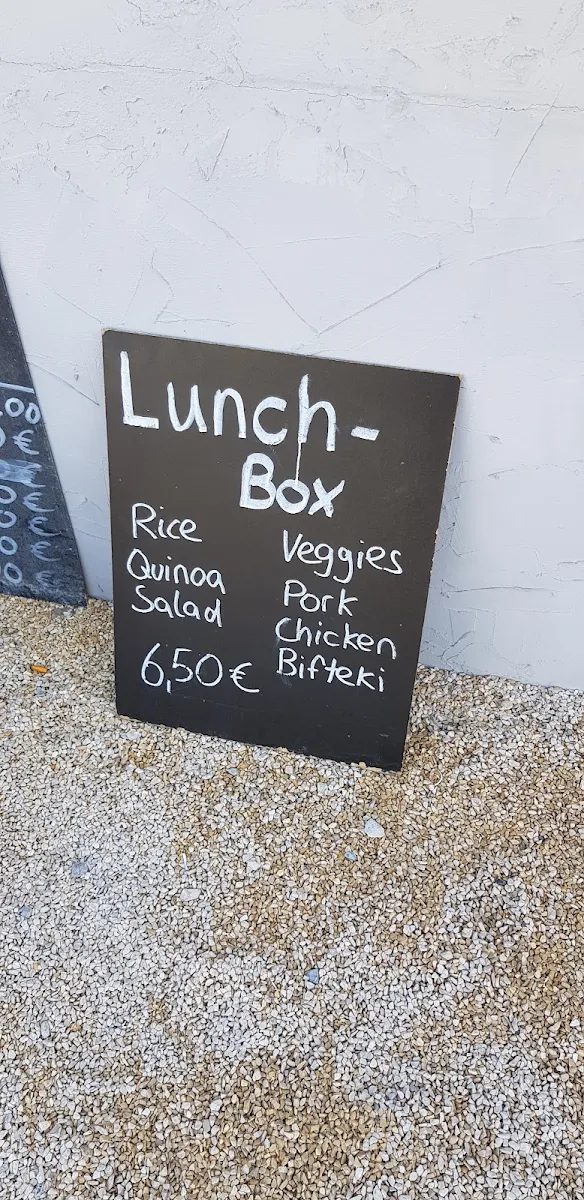 Lunch-
Box
Rice
Quinoa
Salad
6,50€
Veggies
Pork
Chicken
Bifteki
.00
€
€
€
€
€